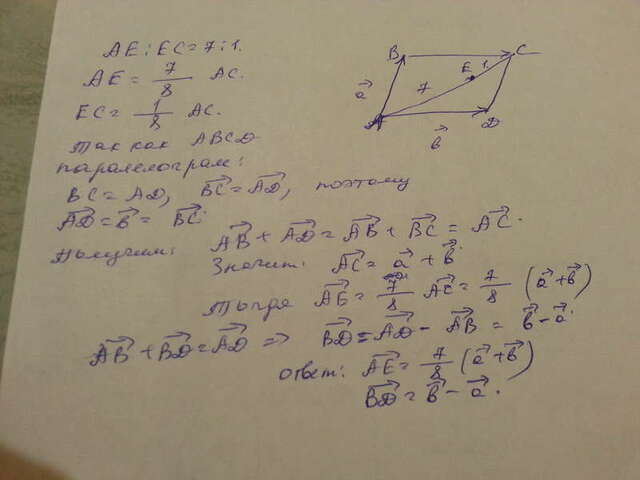 AE : EC = 7 : 1.
AE = 7/8 AC.
EC = 1/8 AC.
Так как ABCD
паралелограм:
BC = AD, B͞C͞ = A͞D͞, поэтому
A͞D͞ = b⃗ = B͞C͞.
Получим: A͞B͞ + A͞D͞ = A͞B͞ + B͞C͞ = A͞C͞.
Значит: A͞C͞ = a⃗ + b⃗.
Тогда A͞E͞ = 7/8 A͞C͞ = 7/8 (a⃗ + b⃗)
A͞B͞ + B͞D͞ = A͞D͞ => B͞D͞ = A͞D͞ - A͞B͞ = b⃗ - a⃗.
Ответ: A͞E͞ = 7/8 (a⃗ + b⃗)
B͞D͞ = b⃗ - a⃗.
B
C
E
1
7
a⃗
A
D
b⃗